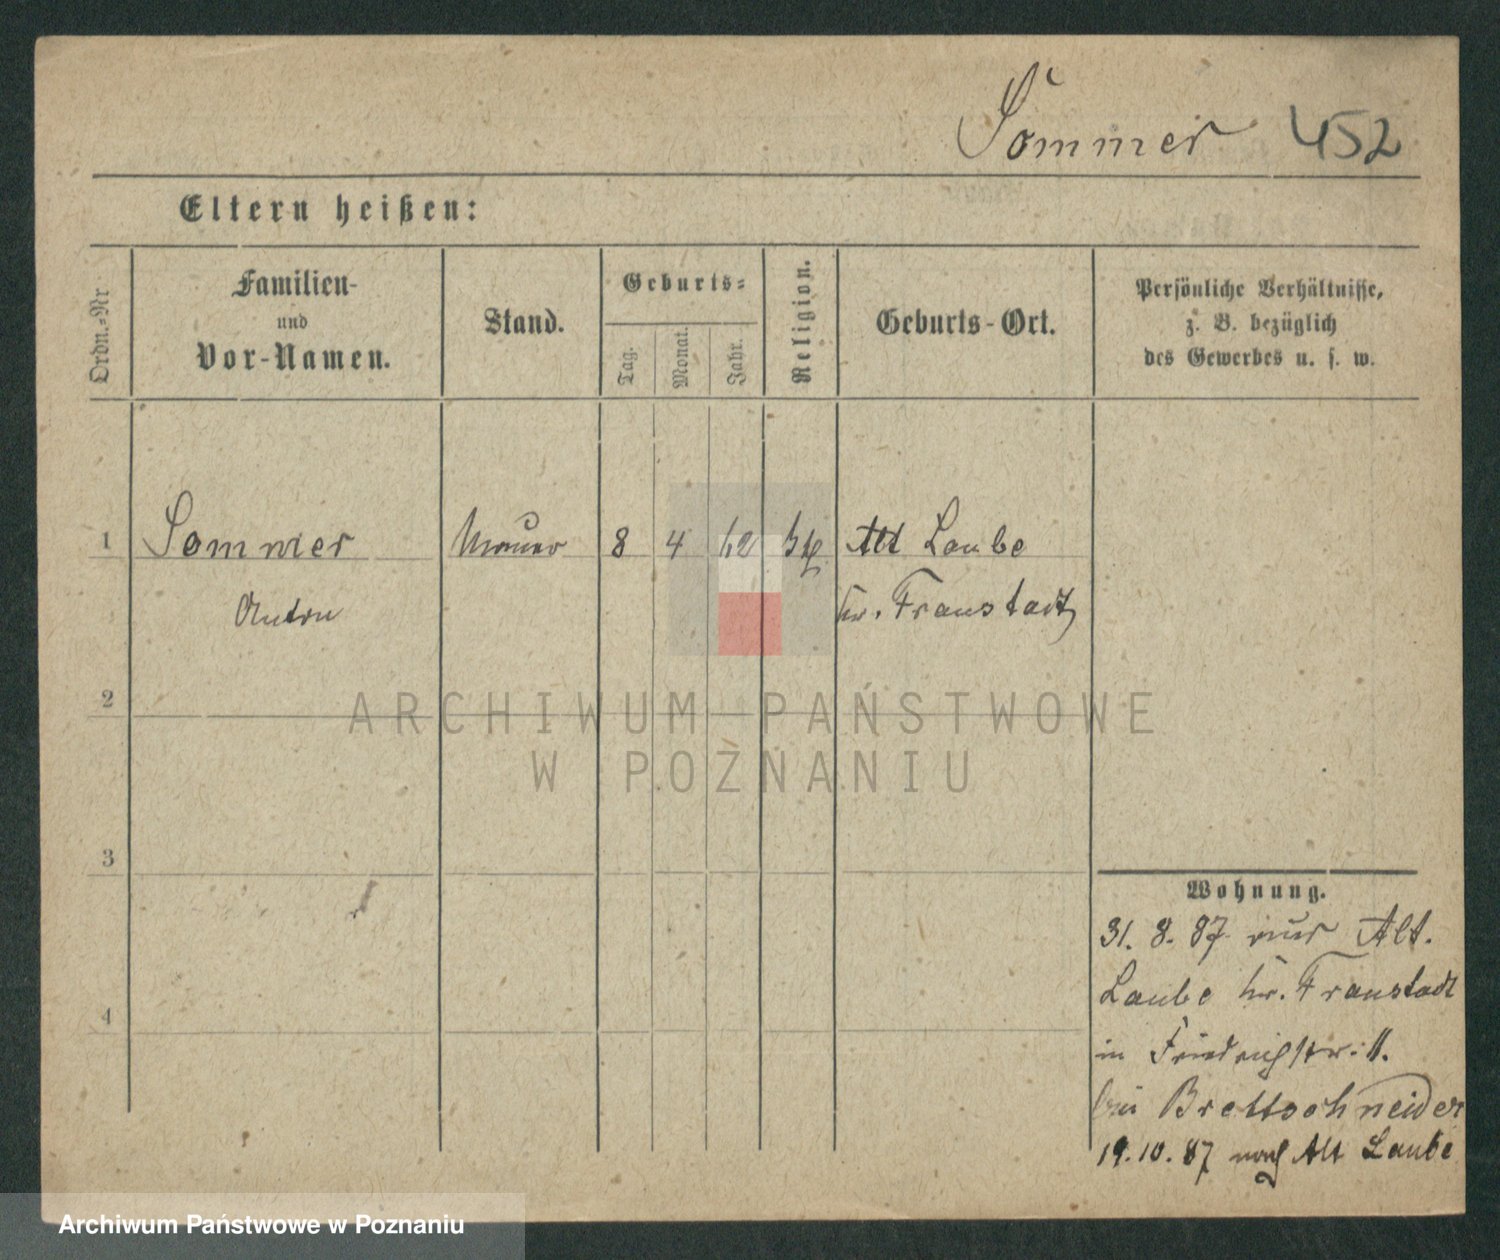 Sommer 452
Eltern heißen:
Ordn.-Nr
Familien-
und
Vor-Namen.
Stand.
Geburts-
Tag.
Monat.
Jahr.
Religion.
Geburts-Ort.
Persönliche Verhältnisse,
z. B. bezüglich
des Gewerbes u. s. w.
1 Sommer Maurer 8 4 62 kth Alt Laube
Anton Kr. Fraustadt
2
3
4
Wohnung.
31. 8. 87 aus Alt.
Laube Kr. Fraustadt
in Friedrichstr. 11.
bei Brettschneider
19. 10. 87 nach Alt Laube
ARCHIWUM PAŃSTWOWE
W POZNANIU
Archiwum Państwowe w Poznaniu